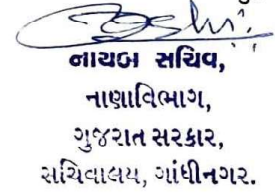 નાયબ સચિવ,
નાણાવિભાગ,
ગુજરાત સરકાર,
સચિવાલય, ગાંધીનગર.